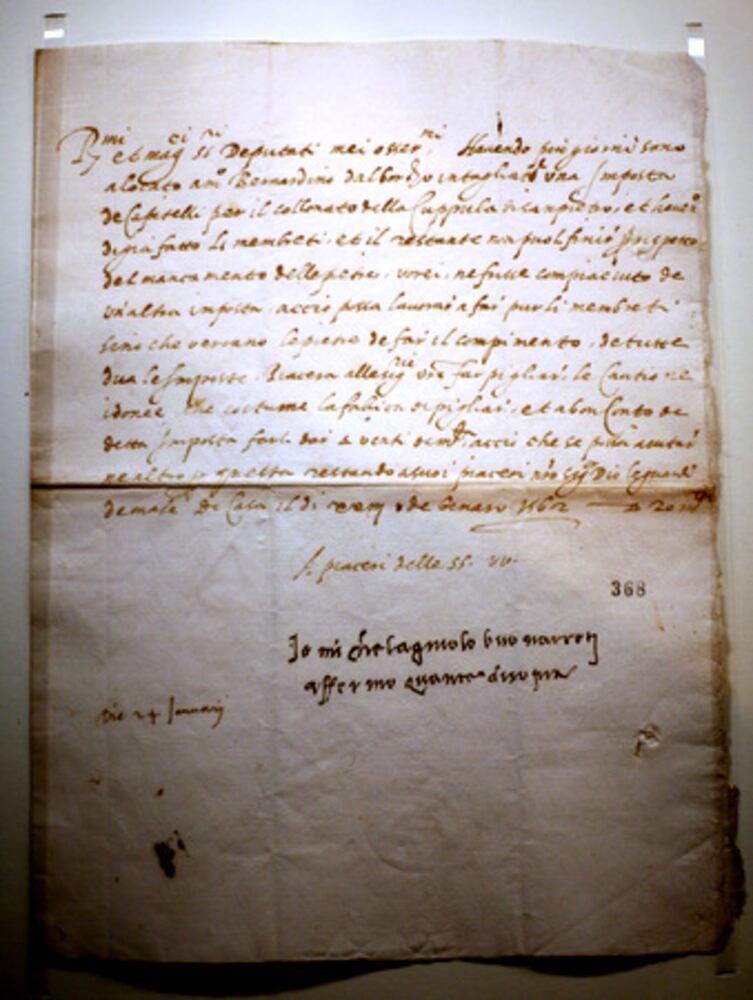 R mi et mag ci S ri Deputati mei osser mi Havendo piu giorni sono
alocato a m° Bernardino dal bor intagliat una Imposta
de Capitelli per il collonato della Cuppula di sanpietro, et haver
digia fatto li membreti, et il restante non puol finir per rispetto
del mancamento delle petre, vorei, ne fusse compiaciuto de
un'altra imposta accio possa lavorar a far pur li membreti
sino che verrano le pietre de far il compimento, de tutte
dua le Imposte. Piacera alle sig rie vre far pigliar, le Cautione
idonee che costume la fabrica di pigliar, et a bon Conto de
detta Imposta farli dar venti accio che se possa aiutar
ne altro questa restando a suoi piaceri Dio le guardi
de male Di Casa il di de Genaro 1562 20
piaceri delle SS. VV.
368
Io mi chelagniolo buonarroti
affermo quanto disopra
Die 24 Januarij